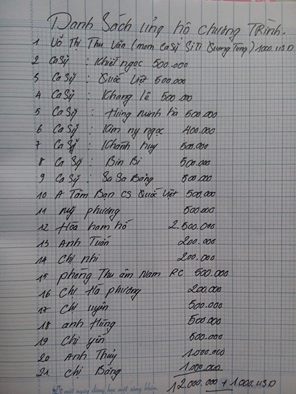 Danh Sách ủng hộ chương TRÌNH.
1 Võ Thị Thu Vân (mem Ca Sỹ SiTi Quang Tùng) 100 USD
2 Ca Sỹ : Khiết ngọc 500.000
3 Ca Sỹ : Quốc Việt 500.000
4 Ca Sỹ : Khang lê 500.000
5 Ca Sỹ : Hùng minh hà 500.000
6 Ca Sỹ : Kim ny ngọc 400.000
7 Ca Sỹ : Khánh huy 500.000
8 Ca Sỹ : Bin Bi 500.000
9 Ca Sỹ : Sa Sa Băng 500.000
10 A Tâm Bạn CS Quốc Việt 500.000
11 mỹ phương 500.000
12 Hòa ham hố 2.500.000
13 Anh Tuấn 200.000
14 Chị nhi 200.000
15 phòng Thu âm Nam PC 500.000
16 Chị Hà phương 200.000
17 Chị uyên 500.000
18 anh Hùng 500.000
19 Chị yến 500.000
20 Anh Thủy 1.000.000
21 chị Băng 1.000.000
12.000.000 + 100 USD